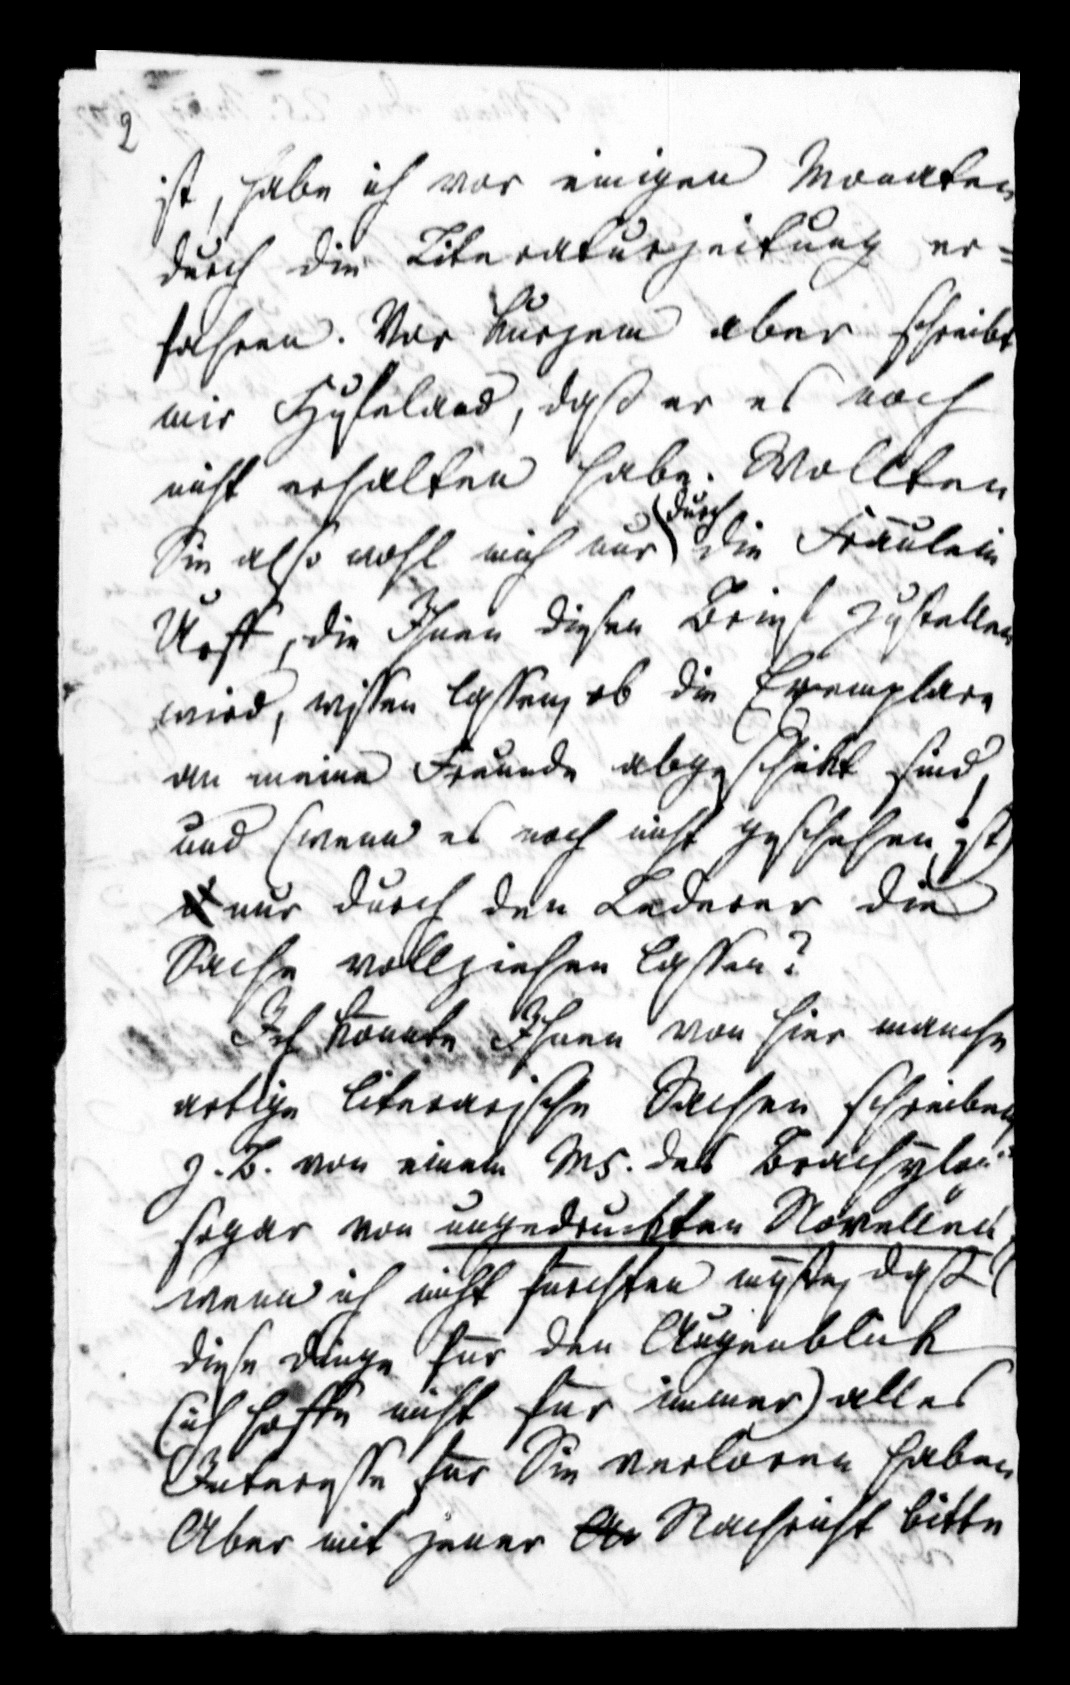 2
ist, habe ich vor einigen Monaten
durch die Literaturzeitung er=
fahren. Vor Kurzem aber schreibt
mir Hufeland, daß er es noch
nicht erhalten habe. Wollten
Sie also wohl mich nur durch die Fräulein
die Ihnen diesen Brief zustellen
wird, wissen lassen, ob die Exemplare
an meine Freunde abgeschikt sind,
und (wenn es noch nicht geschehen ist)
nur durch den Lederer die
Sache vollziehen lassen?
Ich könnte Ihnen von hier manche
artige literarische Sachen schreiben,
z. B. von einem Ms. des
sogar von ungedruckten Novellen,
wenn ich nicht fürchten müßte, daß
diese Dinge für den Augenblick
(ich hoffe nicht für immer) alles
Interesse für Sie verloren haben
Aber mit jener Nachricht bitte